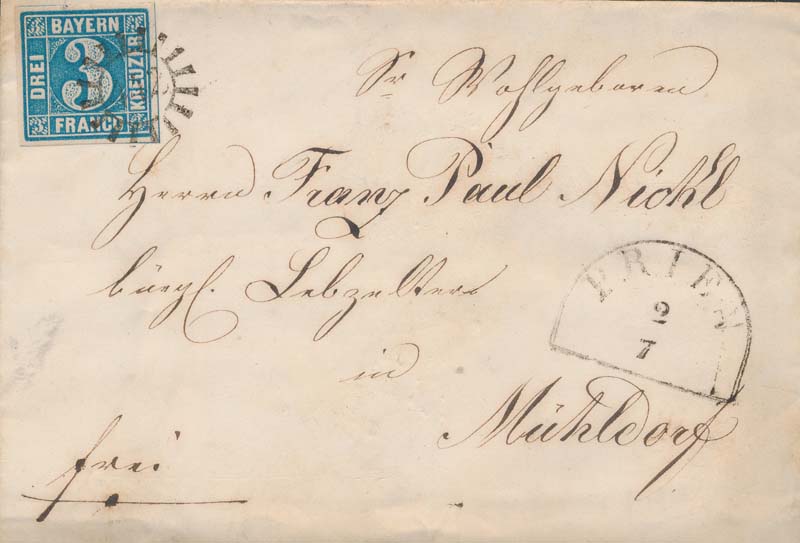 BAYERN
DREI
3
KREUZER
FRANCO
Sr Wohlgeboren
Herrn Franz Paul Nickl
bürgl. Lebzelter
in
Mühldorf
frei
PRIEN
2
7